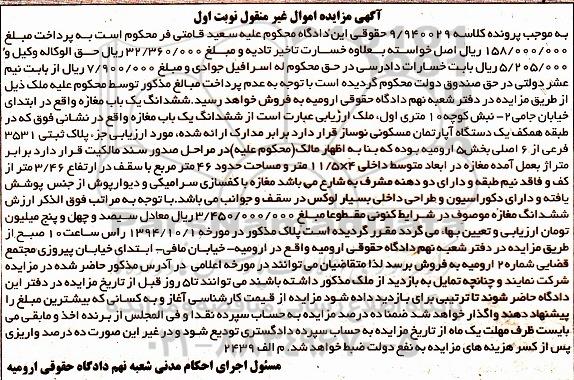 آگهی مزایده اموال غیر منقول نوبت اول
به موجب پرونده کلاسه ۹/۹۴۰۰۲۹ حقوقی این دادگاه محکوم علیه سعید قامتی فر محکوم است به پرداخت مبلغ
۱۵۸/۰۰۰/۰۰۰ ریال اصل خواسته بعلاوه خسارت تاخیر تادیه و مبلغ ۳۲/۳۶۰/۰۰۰ ریال حق الوکاله وکیل و
۵/۲۰۵/۰۰۰ ریال بابت خسارات دادرسی در حق محکوم له اسرافیل جوادی و مبلغ ۷/۹۰۰/۰۰۰ ریال از بابت نیم
عشر دولتی در حق صندوق دولت محکوم گردیده است با توجه به عدم پرداخت مبالغ مذکور توسط محکوم علیه ملک ذیل
از طریق مزایده در دفتر شعبه نهم دادگاه حقوقی ارومیه به فروش خواهد رسید. ششدانگ یک باب مغازه واقع در ابتدای
خیابان جامی۲- نبش کوچه ۱۰ متری اول، ملک ارزیابی عبارت است از ششدانگ یک باب مغازه واقع در نشانی فوق که در
طبقه همکف یک دستگاه آپارتمان مسکونی نوساز قرار دارد برابر مدارک ارائه شده، مورد ارزیابی جزء پلاک ثبتی ۳۵۳۱
فرعی از ۶ اصلی بخش ۵ ارومیه بوده که بنا به اظهار مالک (محکوم علیه)در مراحل صدور سند مالکیت قرار دارد برابر
متراژ بعمل آمده مغازه در ابعاد متوسط داخلی ۴×۱۱/۵ متر و مساحت حدود ۴۶ متر مربع با سقف در ارتفاع ۳/۴۶ متر از
کف و فاقد نیم طبقه و دارای دو دهنه مشرف به شارع می باشد مغازه با کفسازی سرامیکی و دیوارپوش از جنس پوشش
یافته و دارای دکوراسیون و طراحی داخلی بسیار لوکس در سقف و جوانب می باشد.با توجه به مراتب فوق الذکر ارزش
ششدانگ مغازه موصوف در شرایط کنونی مقطوعا مبلغ ۳/۴۵۰/۰۰۰/۰۰۰ ریال معادل سیصد و چهل و پنج میلیون
تومان ارزیابی و تعیین بها می گردد مقرر گردیده است پلاک مذکور در مورخه ۱۳۹۴/۱۰/۲۱ راس ساعت ۱۰ صبح از
طریق مزایده در دفتر شعبه نهم دادگاه حقوقی ارومیه واقع در ارومیه- خیابان مافی- ابتدای خیابان پیروزی مجتمع
قضایی شماره ۲ ارومیه به فروش برسد لذا متقاضیان می توانند در مورخه اعلامی در آدرس مذکور حاضر شده در مزایده
شرکت نمایند و چنانچه تمایل به بازدید از ملک مذکور داشته باشند می توانند تا۵ روز قبل از تاریخ مزایده در دفتر این
دادگاه حاضر شوند تا ترتیبی برای بازدید داده شود مزایده از قیمت کارشناسی آغاز و به کسانی که بیشترین مبلغ را
پیشنهاد دهند واگذار خواهد شد ضمنا ده درصد مزایده به حساب سپرده نقدا و فی المجلس از برنده اخذ و مابقی می
بایست ظرف مهلت یک ماه از تاریخ مزایده به حساب سپرده دادگستری تودیع شود و در غیر این صورت ده درصد واریزی
پس از کسر هزینه های مزایده به نفع دولت ضبط خواهد شد. م الف ۲۴۳۹
مسئول اجرای احکام مدنی شعبه نهم دادگاه حقوقی ارومیه